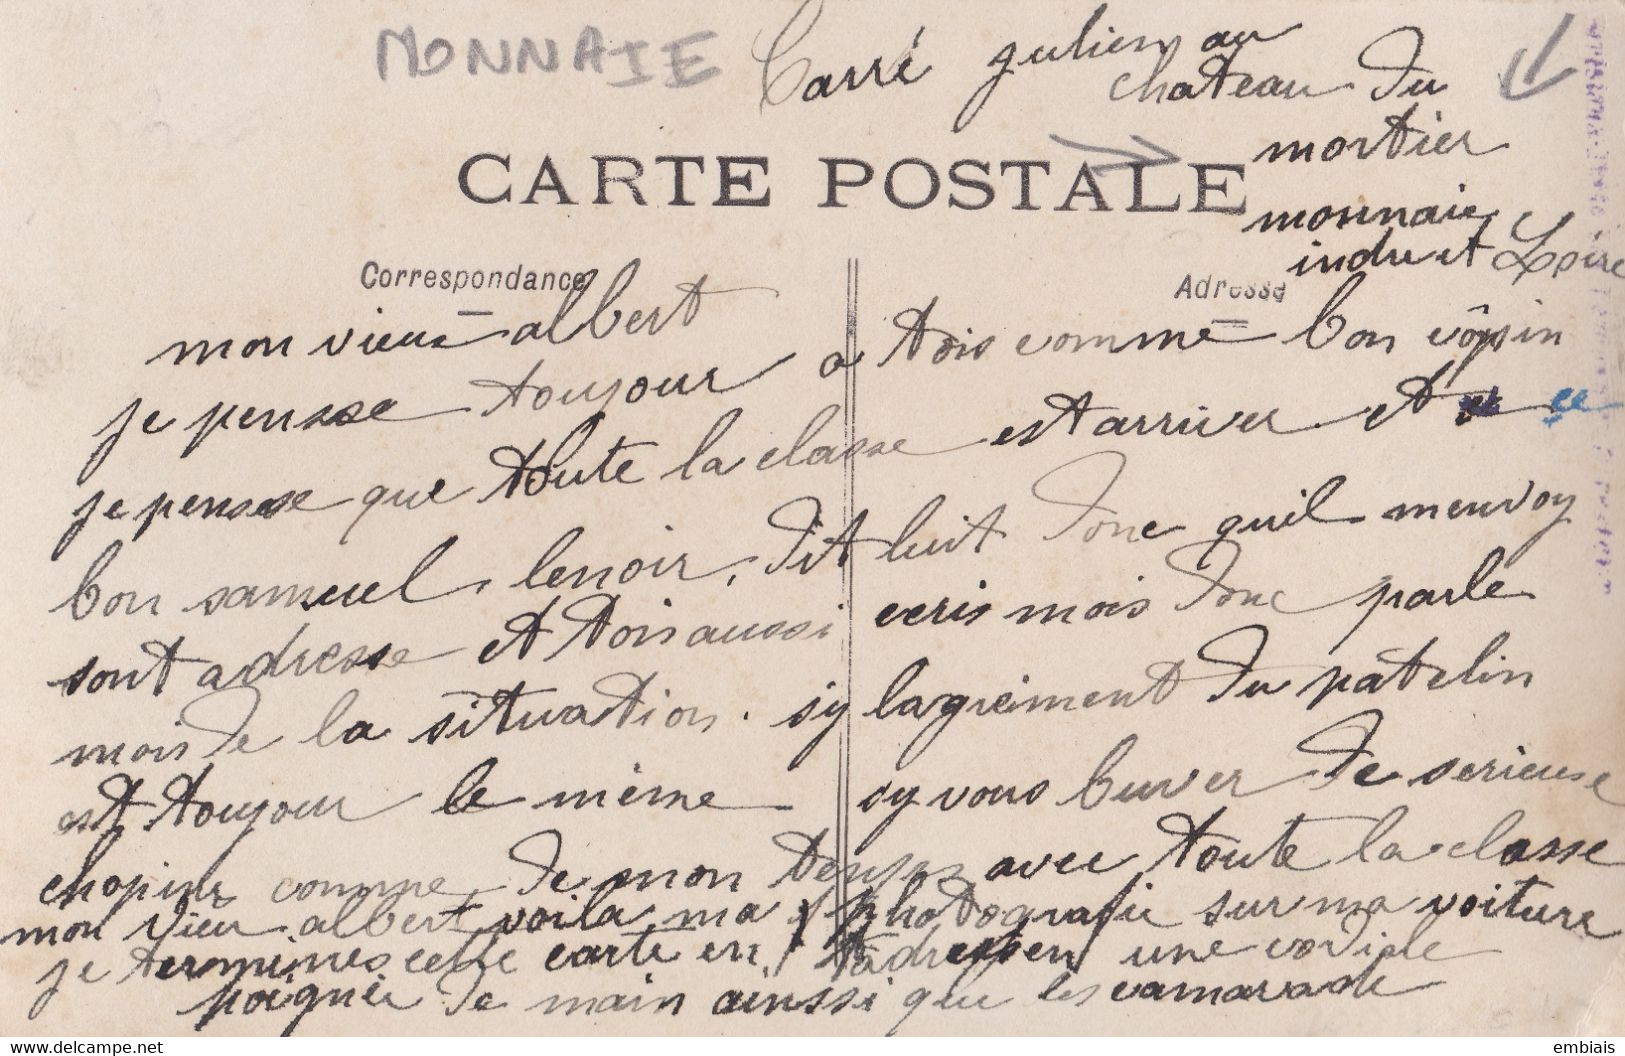 MONNAIE
Carré julien au
chateau du
mortier
CARTE POSTALE
monnaie
indre et Loire
Correspondance
Adresse
mon vieux albert
je pensse toujour a tois comme bon côpin
je pensse que toute la classe est arriver et ce
bon samuel lenoir, dit luit donc quil menvoy
sont adresse et tois aussi ecris mois donc parle
mois de la situation. sy lagréiment du patelin
est toujour le même sy vous buver de serieuse
chopine comme de mon temps avec toute la classe
mon vieu albert voila ma photografie sur ma voiture
je termines cette carte en tadressen une cordiale
poignée de main ainssi que les camarade
embiais
www.delcampe.net